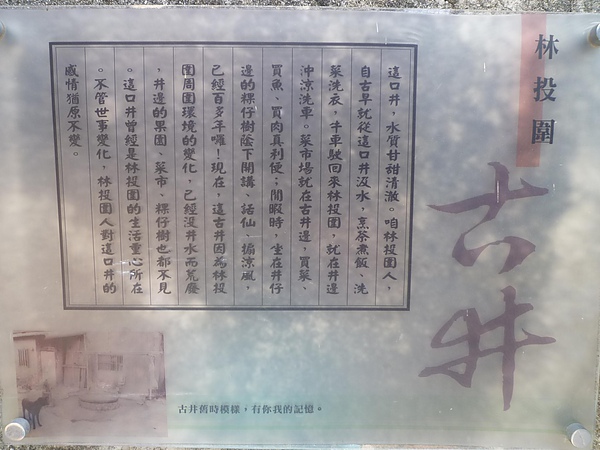 林投圍
古井
這口井，水質甘甜清澈。咱林投圍人，
自古早就從這口井汲水，烹茶煮飯、洗
菜洗衣，牛車駛回來林投圍，就在井邊
沖涼洗車。菜市場就在古井邊，買菜、
買魚、買肉真利便；閒暇時，坐在井仔
邊的粿仔樹蔭下開講、話仙、搧涼風，
已經百多年囉！現在，這古井因為林投
圍周圍環境的變化，已經沒井水而荒廢
，井邊的果園、菜市、粿仔樹也都不見
。這口井曾經是林投圍的生活重心所在
。不管世事變化，林投圍人對這口井的
感情猶原不變。
古井舊時模樣，有你我的記憶。